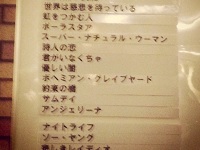 世界は慈悲を待っている
虹をつかむ人
ポーラスタア
スーパー・ナチュラル・ウーマン
詩人の恋
君がいなくちゃ
優しい闇
ボヘミアン・グレイブヤード
約束の橋
サムデイ
アンジェリーナ
ナイトライフ
ソー・ヤング
悲しきレイディオ